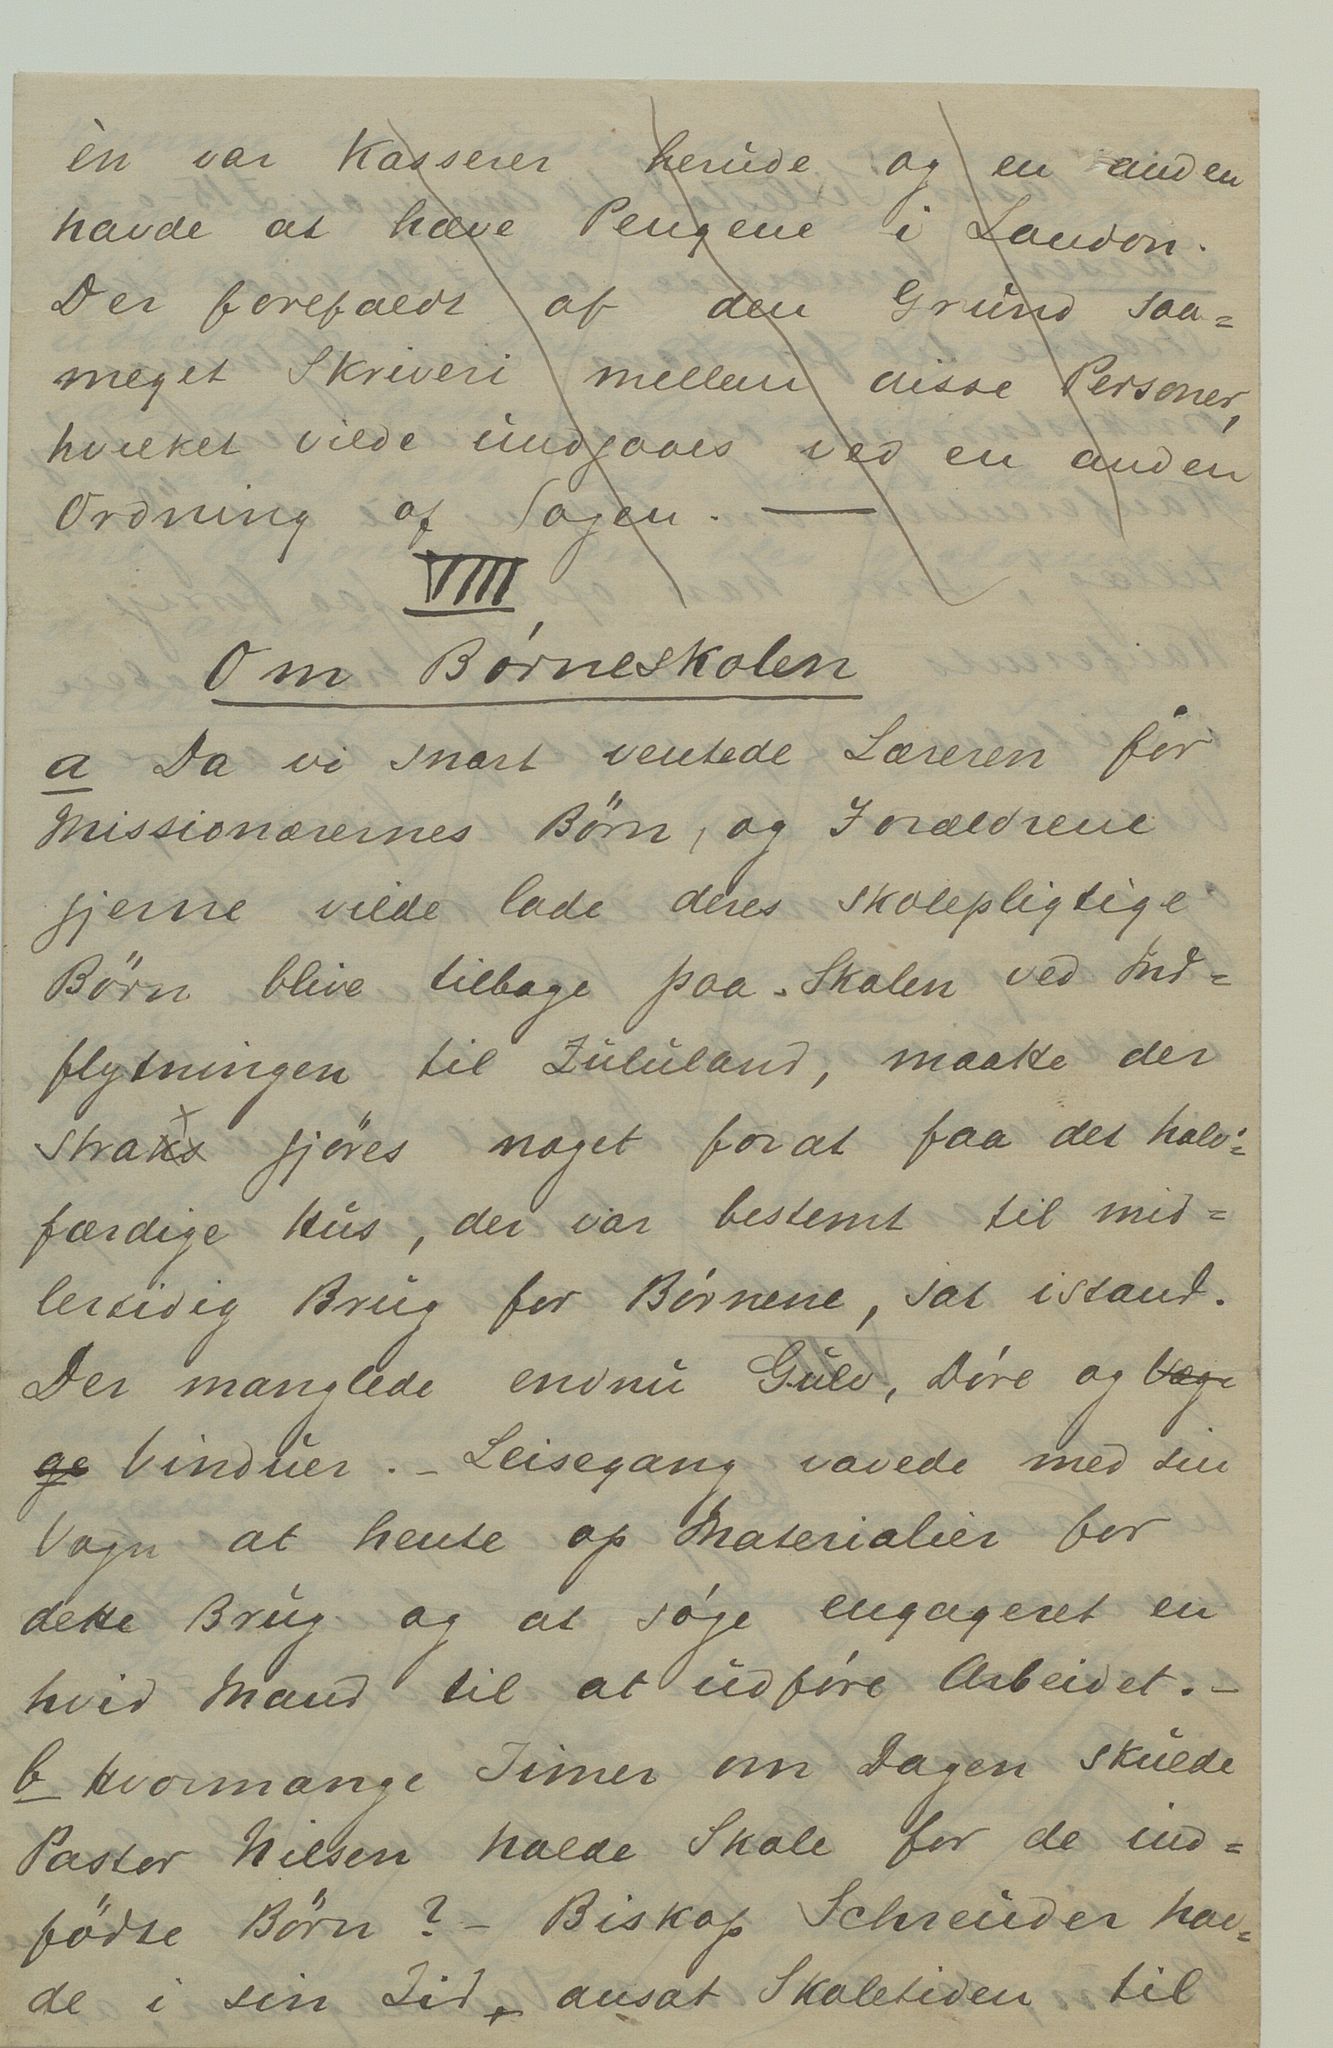 èn var Kasserer herude og en anden
havde at hæve Pengene i London.
Der forefaldt af den Grund saa=
meget Skriveri mellem disse Personer,
hvilket vilde undgaaes ved en anden
Ordning af Sagen. —
VIII
Om Børneskolen
a Da vi snart ventede Læreren for
Missionærernes Börn, og Forældrene
gjerne vilde lade deres skolepligtige
Börn blive tilbage paa Skolen ved Ind=
flytningen til Zululand, maatte der
strax gjöres noget forat faa det halv=
færdige Hus, der var bestemt til mid=
lertidig Brug for Børnene, sat istand.
Der manglede endnu Gulv, Døre og Væge
ge Vinduer. - Leisegang vovede med sin
Vogn at hente op Materialier for
dette Brug og at søge engageret en
hvid Mand til at udføre Arbeidet. -
b Hvormange Timer om Dagen skulde
Pastor Nilsen holde Skole for de ind=
födte Börn? - Biskop Schreuder hav=
de i sin Tid ansat Skoletiden til